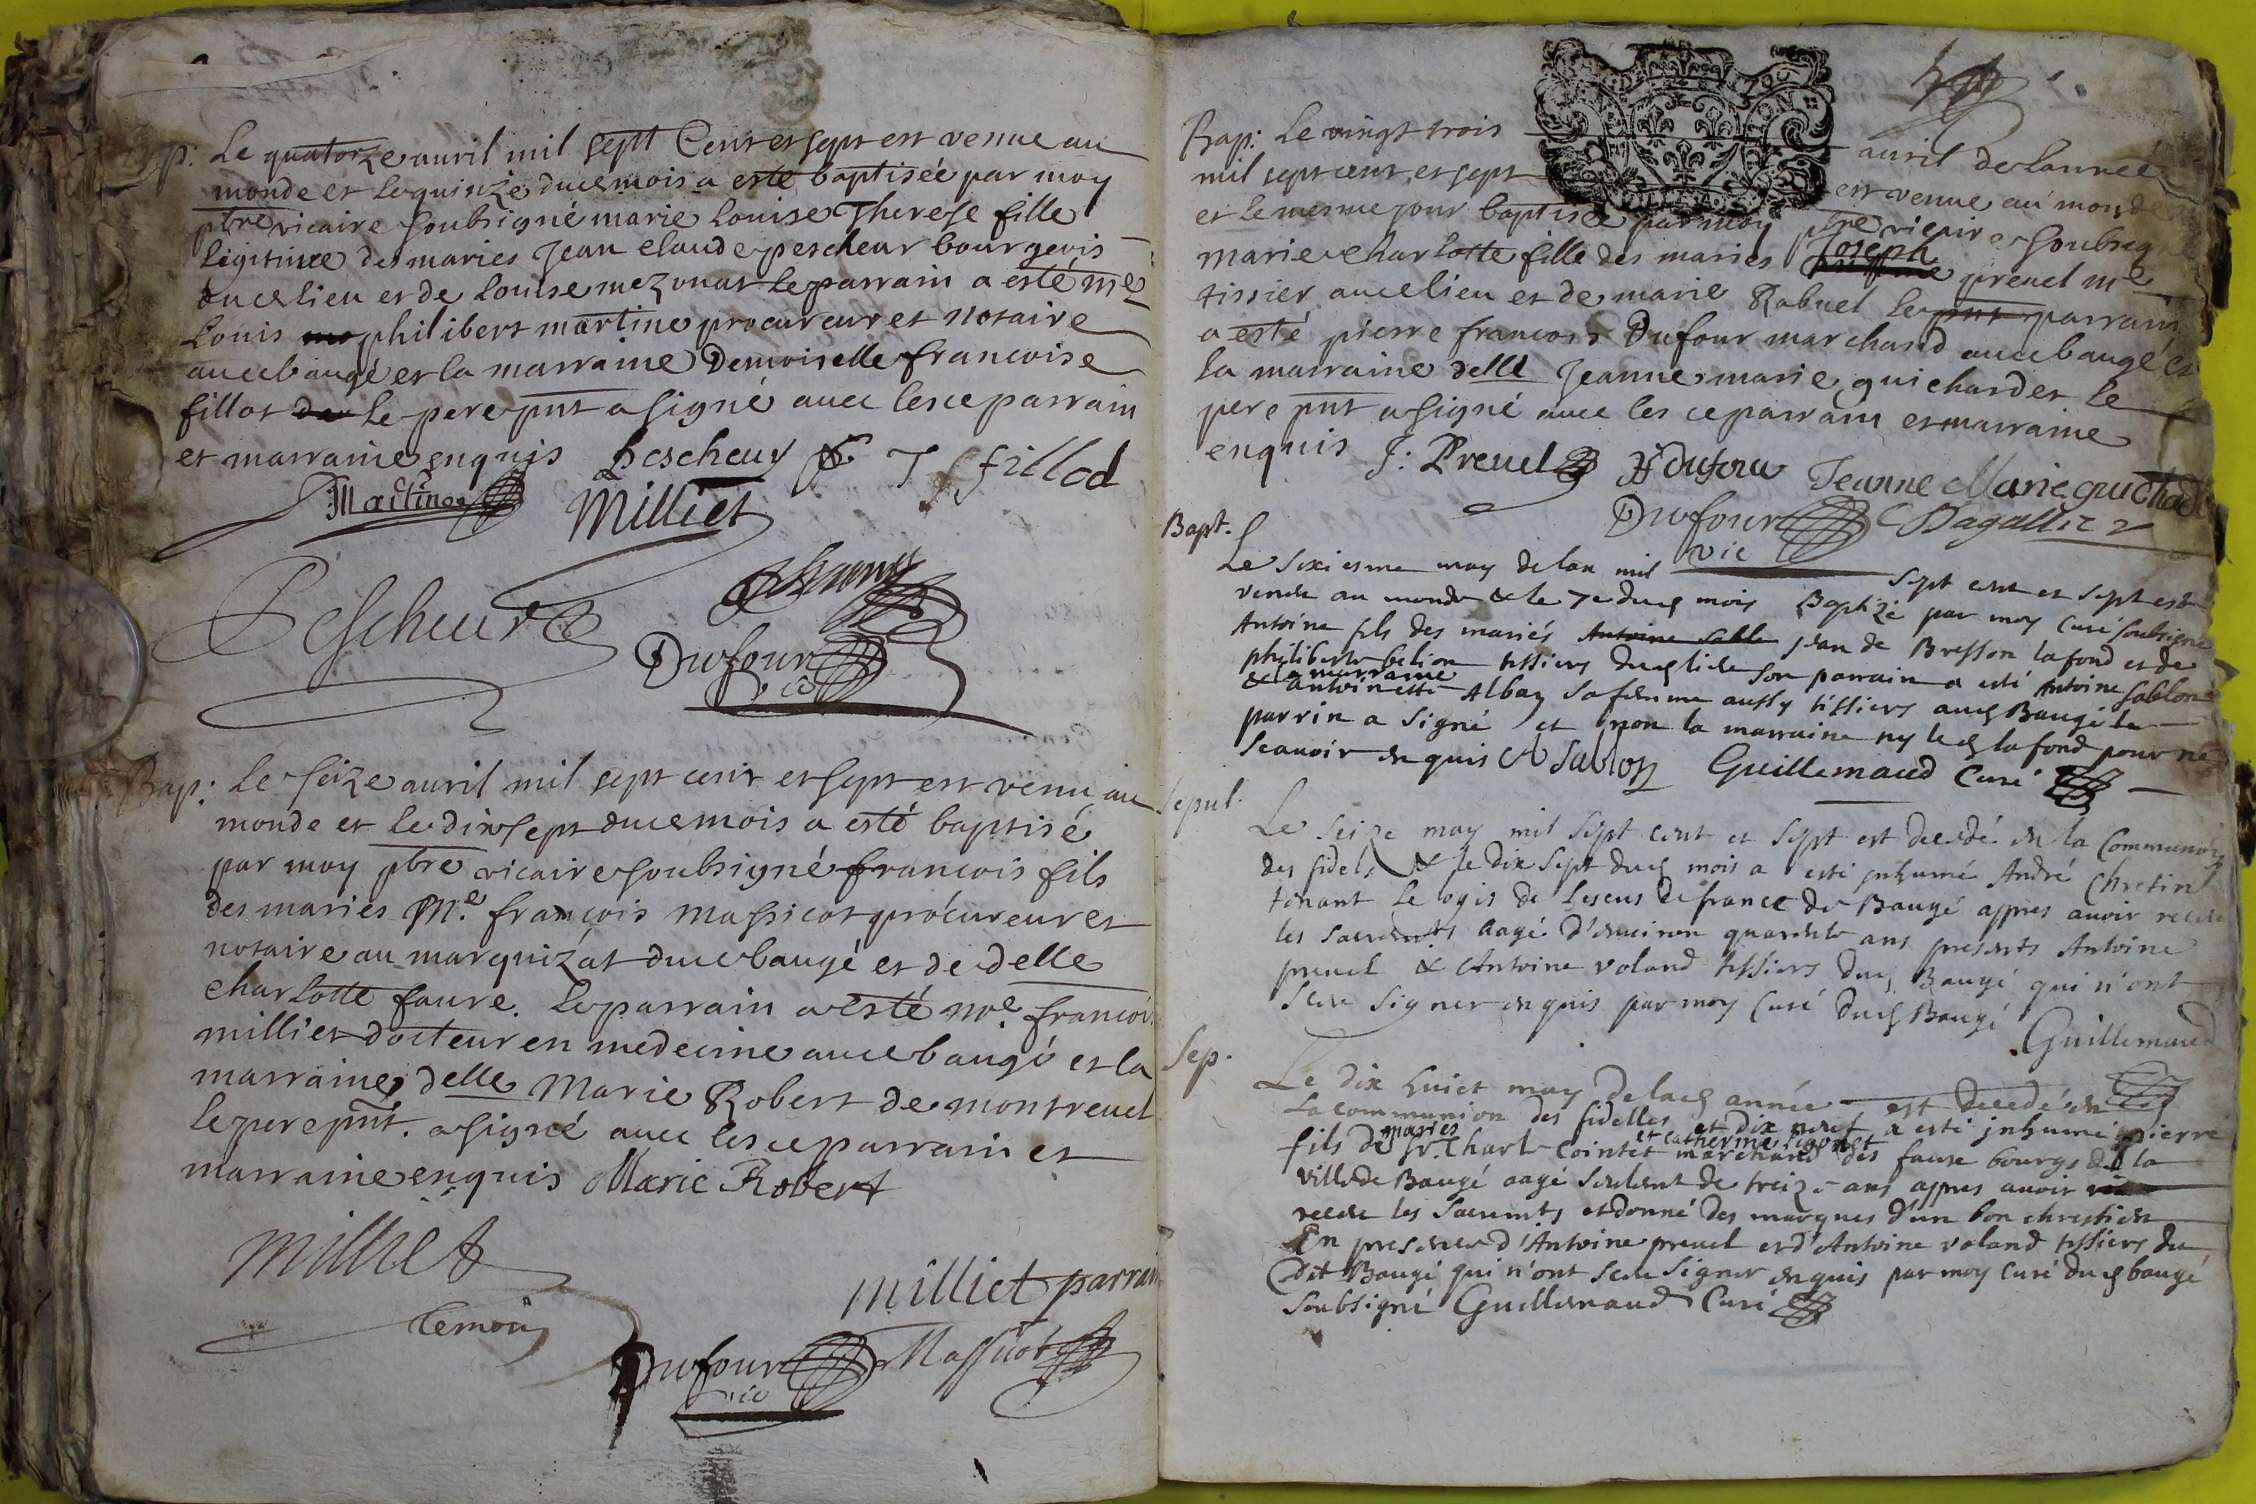 Le quatorze auril mil sept Cent et sept est venue au
monde et le quinze ducemois a esté baptiséé par moy
pbre vicaire soubsigné marie Louise Therese fille
legitime des maries Jean claude pescheur bourgeois
ducelieu et de Louise mezonat le parrain a esté me
Louis philibert martine procureur et Notaire
aucebaugé et la marraine Demoiselle francoise
fillot le pere pnt a signé auec lesce parrain
et marraine enquis Pescheur fillod
Martine Milliet
Pescheur
Dufour
vic
Bap: Le seize auril mil sept cent et sept est venu au
monde et le dix sept ducemois a esté baptisé
par moy pbre vicaire soubsigné francois fils
des maries Me. françois massicot procureur et
notaire au marquizat ducebaugé et de delle
charlotte faure. Le parrain a esté me francois
milliet docteur en medecine aucebaugé et la
marraine delle Marie Robert de montreuel
le pere pnt. a signé auec lesce parrain et
marraine enquis Marie Robert
Milliet
temoin
milliet parrain
Dufour Massicot
vic
Bap: Le vingt trois auril de lannee
mil sept cent et sept est venue au monde
et le mesme jour baptisée par moy pbre vicaire soubsigné
Joseph
marie charlotte fille des maries preuel me
tissier aucelieu et de marie Rabuel le parrain
a esté pierre francois Dufour marchand aucebaugé et
la marraine delle Jeanne marie guichard et le
pere pnt a signé auec les ce parrain et marraine
enquis J: Preuel Dufour Jeanne Marie guichard
Dufour Dagallier
vic
Bapt.
Le sixiesme may de lan mil sept cent et sept est
venu au monde & le 7e duq mois Baptizé par moy Curé soubsigné
Antoine fils des mariés Antoine Sablon jean de Bresson lafond et de
philiberte belion tissiers duq lieu son parrain a esté Antoine sablon
la marraine
& antoinette Alban sa femme aussy tissiers auq Baugé le
parrin a signé et non la marraine ny leq lafond pour ne
scauoir enquis A Sablon Guillemaud Curé
Sepul.
Le seize may mil sept cent et sept est decedé en la Communion
des fidels & le dix sept duq mois a esté inhumé André Chretin
tenant le logis de Lescus de france de Baugé appres auoir receu
les sacrements aagé d'enuiron quarente ans presents Antoine
preuel & Antoine voland tissiers duq Baugé qui n'ont
sceu signer enquis par moy Curé duq Baugé
Guillemaud
Sep.
Le dix huict may de laq année est decedé en
La communion des fidelles et dix neuf a esté inhumé pierre
mariés et catherine Ligonet
fils de sr. Charle Cointet marchand des faux bourgs de la
ville de Baugé aagé seulement de treize ans appres auoir
receu les sacremts et donné des marques d'un bon chrestien
En presence d'Antoine preuel et d'Antoine voland tissiers du
dit Baugé qui n'ont sceu signer enquis par moy Curé duq baugé
soubsigné Guillemaud Curé